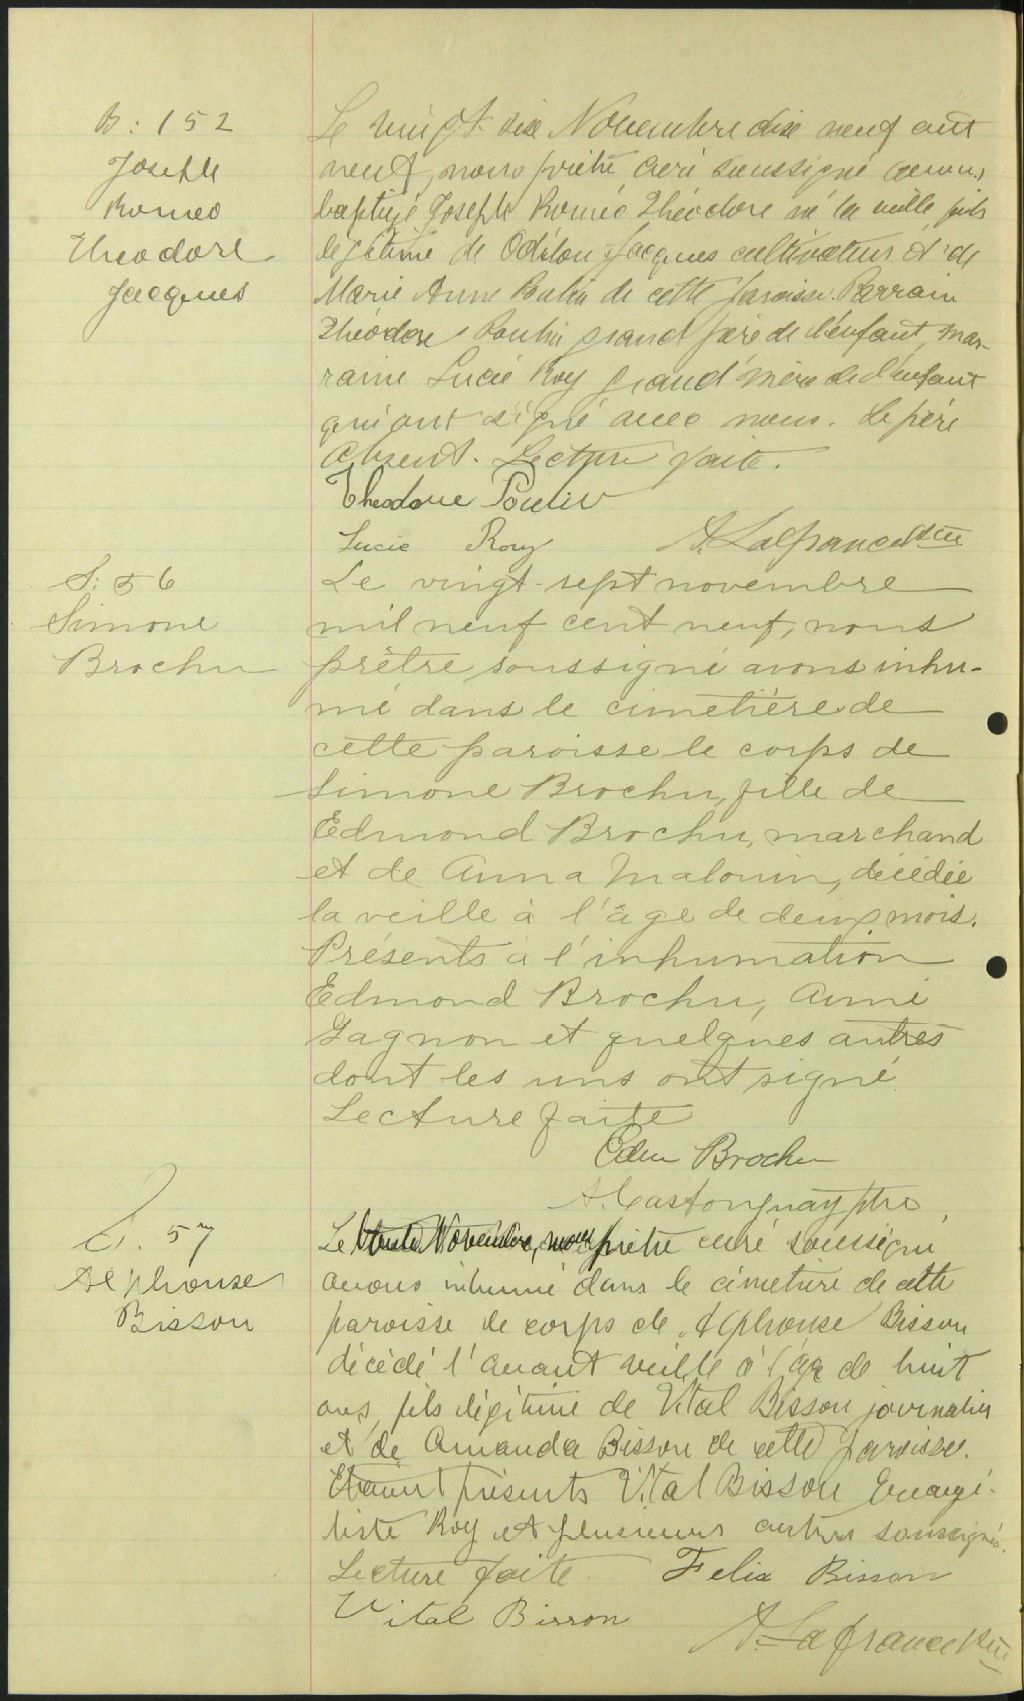 B: 152
Joseph
Romeo
Theodore
Jacques
Le vingt-six Novembre dix neuf cent
neuf, nous prêtre curé soussigné avons
baptisé Joseph Roméo Théodore né la veille, fils
légitime de Odilon Jacques cultivateur et de
Marie Anne Poulin de cette paroisse. Parrain
Théodore Poulin grand père de l'enfant, mar-
raine Lucie Roy grand'mère de l'enfant
qui ont signé avec nous. Le père
absent. Lecture faite.
Theodore Poulin
Lucie Roy A. Lafrance Ptre
S: 56
Simone
Brochu
Le vingt-sept novembre
mil neuf cent neuf, nous
prêtre soussigné avons inhu-
mé dans le cimetière de
cette paroisse le corps de
Simone Brochu, fille de
Edmond Brochu, marchand
et de Anna Malouin, décédée
la veille à l'âge de deux mois.
Présents à l'inhumation
Edmond Brochu, Aimé
Gagnon et quelques autres
dont les uns ont signé.
Lecture faite
Edm Brochu
A. Castonguay ptre
S. 57
Alphonse
Bisson
Le trente Novembre, nous prêtre curé soussigné
avons inhumé dans le cimetière de cette
paroisse le corps de Alphonse Bisson
décédé l'avant veille à l'âge de huit
ans, fils légitime de Vital Bisson journalier
et de Amanda Bisson de cette paroisse.
Etaient présents Vital Bisson Evangé-
liste Roy et plusieurs autres soussignés.
Lecture faite. Felix Bisson
Vital Bisson
A. Lafrance Ptre